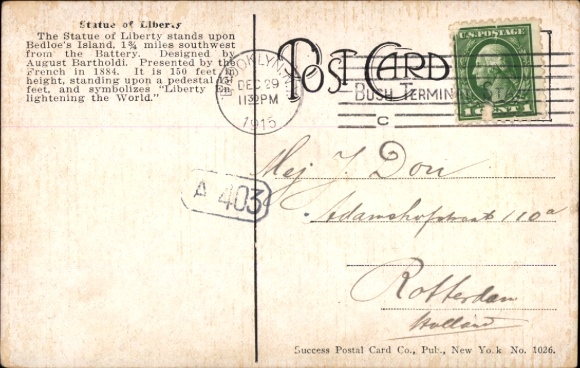 Statue of Liberty
The Statue of Liberty stands upon
Bedloe's Island, 1¾ miles southwest
from the Battery. Designed by
August Bartholdi. Presented by the
French in 1884. It is 150 feet in
height, standing upon a pedestal
feet, and symbolizes "Liberty En-
lightening the World."
POST CARD
BROOKLYN
DEC 29
11 30 PM
1915
BUSH TERMIN
C
U.S. POSTAGE
1 CENT 1
A 403
Mej J. Don
Adamshofstraat 110a
Rotterdam
Holland
Success Postal Card Co., Pub., New York No. 1026.